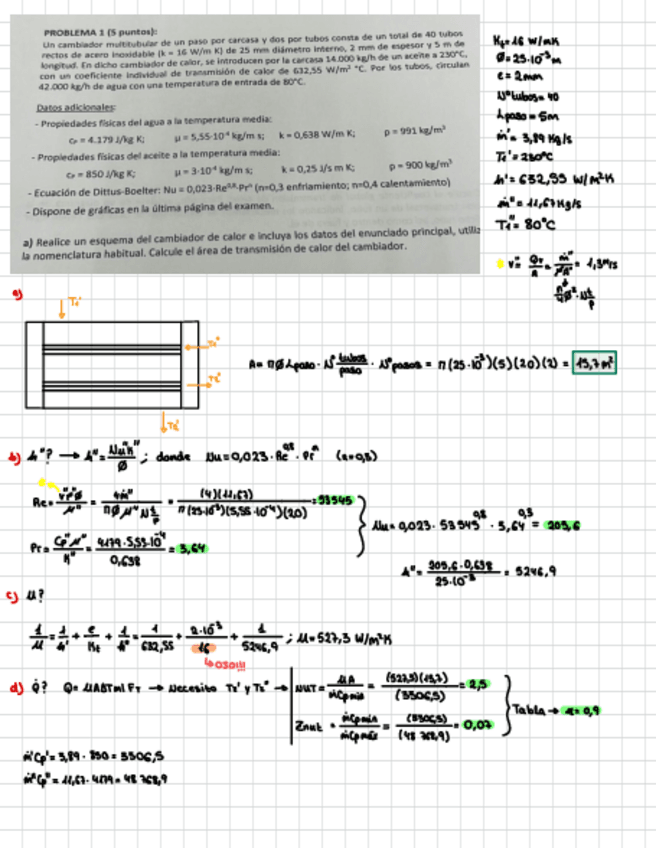 PROBLEMA 1 (5 puntos):
Un cambiador multitubular de un paso por carcasa y dos por tubos consta de un total de 40 tubos
rectos de acero inoxidable (k = 16 W/m K) de 25 mm diámetro interno, 2 mm de espesor y 5 m de
longitud. En dicho cambiador de calor, se introducen por la carcasa 14.000 kg/h de un aceite a 230°C,
con un coeficiente individual de transmisión de calor de 632,55 W/m² °C. Por los tubos, circulan
42.000 kg/h de agua con una temperatura de entrada de 80°C.
Datos adicionales:
- Propiedades físicas del agua a la temperatura media:
cₚ = 4.179 J/kg K; μ = 5,55·10⁻⁴ kg/m s; k = 0,638 W/m K; ρ = 991 kg/m³
- Propiedades físicas del aceite a la temperatura media:
cₚ = 850 J/kg K; μ = 3·10⁻⁴ kg/m s; k = 0,25 J/s m K; ρ = 900 kg/m³
- Ecuación de Dittus-Boelter: Nu = 0,023·Re⁰·⁸·Prⁿ (n=0,3 enfriamiento; n=0,4 calentamiento)
- Dispone de gráficas en la última página del examen.
a) Realice un esquema del cambiador de calor e incluya los datos del enunciado principal, utiliz
la nomenclatura habitual. Calcule el área de transmisión de calor del cambiador.
Kt = 16 W/mK
Ø = 25·10⁻³ m
e = 2mm
Nº tubos = 40
Lpaso = 5m
ṁ' = 3,89 Kg/s
T₁' = 230°C
h' = 632,55 W/m²K
ṁ" = 11,67 Kg/s
T₁" = 80°C
a)
A = πØ Lpaso · Nº tubos/paso · Nº pasos = π(25·10⁻³)(5)(20)(2) = 15,7 m²
b) h"? → h" = Nu"k"/Ø ; donde Nu = 0,023·Re^0,8·Pr^n
Re = v"ρ"Ø/μ" = 4ṁ"/πØμ"Nt/p = (4)(11,67)/π(25·10⁻³)(5,55·10⁻⁴)(20) = 53545
Pr = Cp"μ"/K" = 4179·5,55·10⁻⁴/0,638 = 3,64
Nu = 0,023·53545^0,8·3,64^0,3 = 205,6
h" = 205,6·0,638/25·10⁻³ = 5246,9
c) U?
1/U = 1/h' + e/Kt + 1/h" = 1/632,55 + 2·10⁻³/16 + 1/5246,9 ; U = 527,3 W/m²K
↳ OJO!!!
d) Q̇? Q = UAΔTml FT → Necesito T₂' y T₂" → NUT = UA/ṁCpmin = (527,3)(15,7)/(3306,5) = 2,5
Znut = ṁCpmin/ṁCpmáx = (3306,5)/(48 768,9) = 0,07
Tabla →
ṁ'Cp' = 3,89 · 850 = 3306,5
ṁ"Cp" = 11,67 · 4179 = 48 768,9